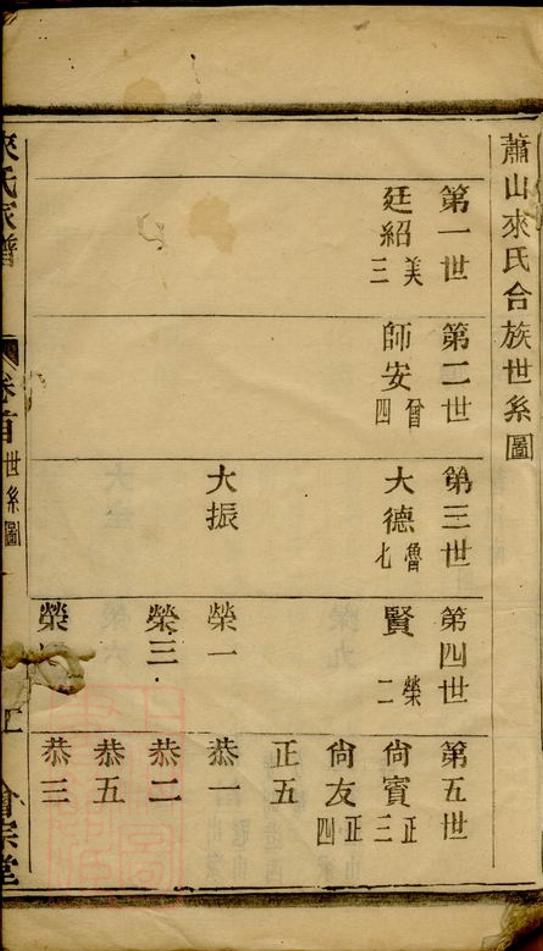 蕭山來氏合族世系圖
第一世
廷紹 美三
第二世
師安 曾四
第三世
大德 魯七
大振
第四世
賢 榮二
榮一
榮三
榮
第五世
尙賓 正三
尙友 正四
正五
恭一
恭二
恭五
恭三
來氏家譜
卷首 世系圖
會宗堂